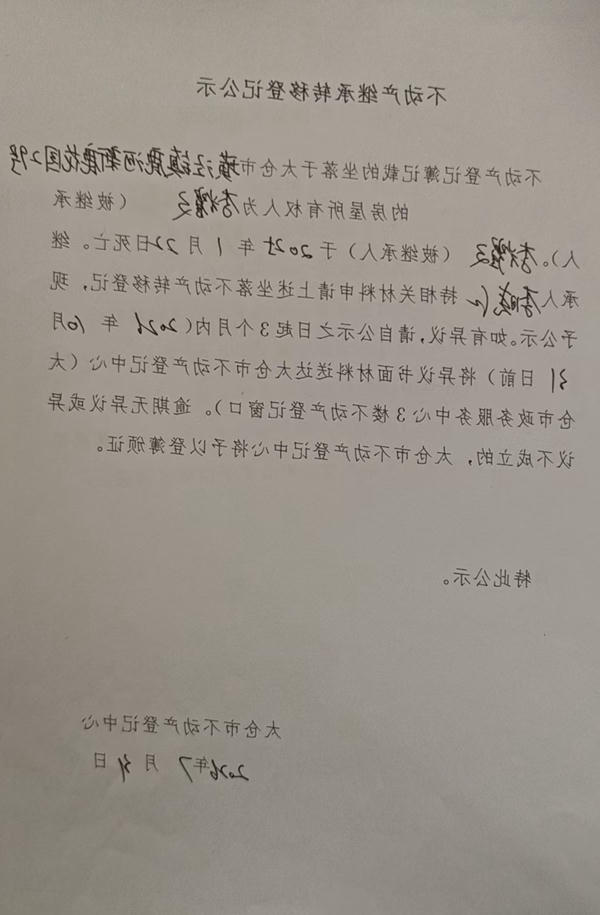 不动产继承转移登记公示
不动产登记簿记载的坐落于太仓市璜泾镇鹿河新鹿花园29号
的房屋所有权人为李 （被继承
人）。李 （被继承人）于2025年1月22日死亡。继
承人李晓 持相关材料申请上述坐落不动产转移登记，现
予公示。如有异议，请自公示之日起3个月内（2026年10月
31日前）将异议书面材料送达太仓市不动产登记中心（太
仓市政务服务中心3楼不动产登记窗口）。逾期无异议或异
议不成立的，太仓市不动产登记中心将予以登簿颁证。
特此公示。
太仓市不动产登记中心
2026年7月31日